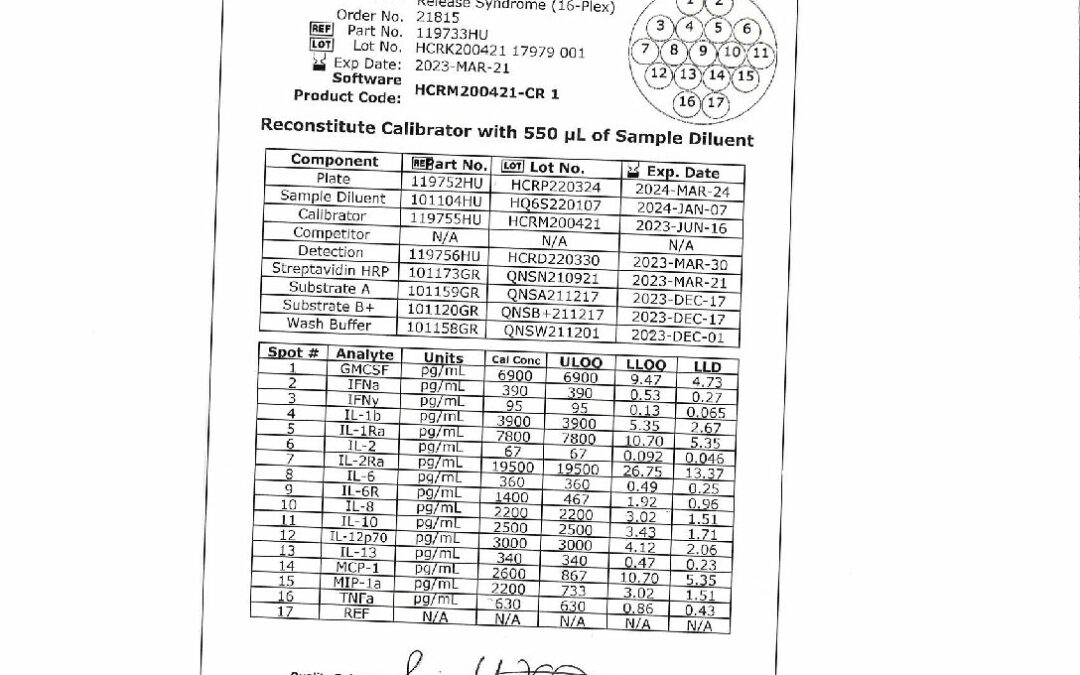 Release Syndrome (16-Plex)
Order No. 21815
REF Part No. 119733HU
LOT Lot No. HCRK200421 17979 001
Exp Date: 2023-MAR-21
Software
Product Code: HCRM200421-CR 1
1 2
3 4 5 6
7 8 9 10 11
12 13 14 15
16 17
Reconstitute Calibrator with 550 µL of Sample Diluent
Component REF Part No. LOT Lot No. Exp. Date
Plate 119752HU HCRP220324 2024-MAR-24
Sample Diluent 101104HU HQ6S220107 2024-JAN-07
Calibrator 119755HU HCRM200421 2023-JUN-16
Competitor N/A N/A N/A
Detection 119756HU HCRD220330 2023-MAR-30
Streptavidin HRP 101173GR QNSN210921 2023-MAR-21
Substrate A 101159GR QNSA211217 2023-DEC-17
Substrate B+ 101120GR QNSB+211217 2023-DEC-17
Wash Buffer 101158GR QNSW211201 2023-DEC-01
Spot # Analyte Units Cal Conc ULOQ LLOQ LLD
1 GMCSF pg/mL 6900 6900 9.47 4.73
2 IFNa pg/mL 390 390 0.53 0.27
3 IFNγ pg/mL 95 95 0.13 0.065
4 IL-1b pg/mL 3900 3900 5.35 2.67
5 IL-1Ra pg/mL 7800 7800 10.70 5.35
6 IL-2 pg/mL 67 67 0.092 0.046
7 IL-2Ra pg/mL 19500 19500 26.75 13.37
8 IL-6 pg/mL 360 360 0.49 0.25
9 IL-6R pg/mL 1400 467 1.92 0.96
10 IL-8 pg/mL 2200 2200 3.02 1.51
11 IL-10 pg/mL 2500 2500 3.43 1.71
12 IL-12p70 pg/mL 3000 3000 4.12 2.06
13 IL-13 pg/mL 340 340 0.47 0.23
14 MCP-1 pg/mL 2600 867 10.70 5.35
15 MIP-1a pg/mL 2200 733 3.02 1.51
16 TNFa pg/mL 630 630 0.86 0.43
17 REF N/A N/A N/A N/A N/A